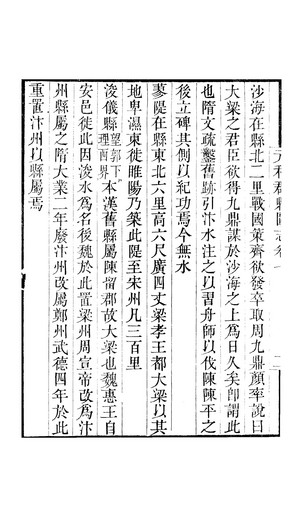 元和郡縣圖志卷七
沙海在縣北二里戰國策齊欲發卒取周九鼎顔率說曰
大梁之君臣欲得九鼎謀於沙海之上爲日久矣卽謂此
也隋文疏鑿舊跡引汴水注之以習舟師以伐陳陳平之
後立碑其側以紀功焉今無水
蓼隄在縣東北六里高六尺廣四丈梁孝王都大梁以其
地卑濕東徙睢陽乃築此隄至宋州凡三百里
浚儀縣望郭下本漢舊縣屬陳留郡故大梁也魏惠王自
安邑徙此因浚水爲名後魏於此置梁州周宣帝改爲汴
州縣屬之隋大業二年廢汴州改屬鄭州武德四年於此
重置汴州以縣屬焉